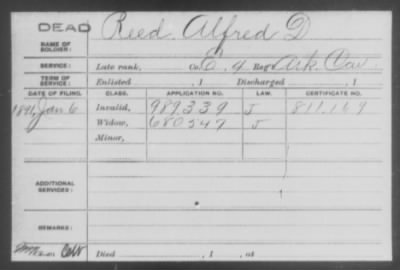 DEAD
Reed Alfred D
NAME OF SOLDIER:
SERVICE: Late rank, Co. E, 4 Reg't Ark. Cav.
TERM OF SERVICE: Enlisted , 1 Discharged , 1
DATE OF FILING. CLASS. APPLICATION NO. LAW. CERTIFICATE NO.
1891, Jan 6 Invalid, 989.339 J 811.169
Widow, 680547 J
Minor,
ADDITIONAL SERVICES:
REMARKS:
Died , 1 , at